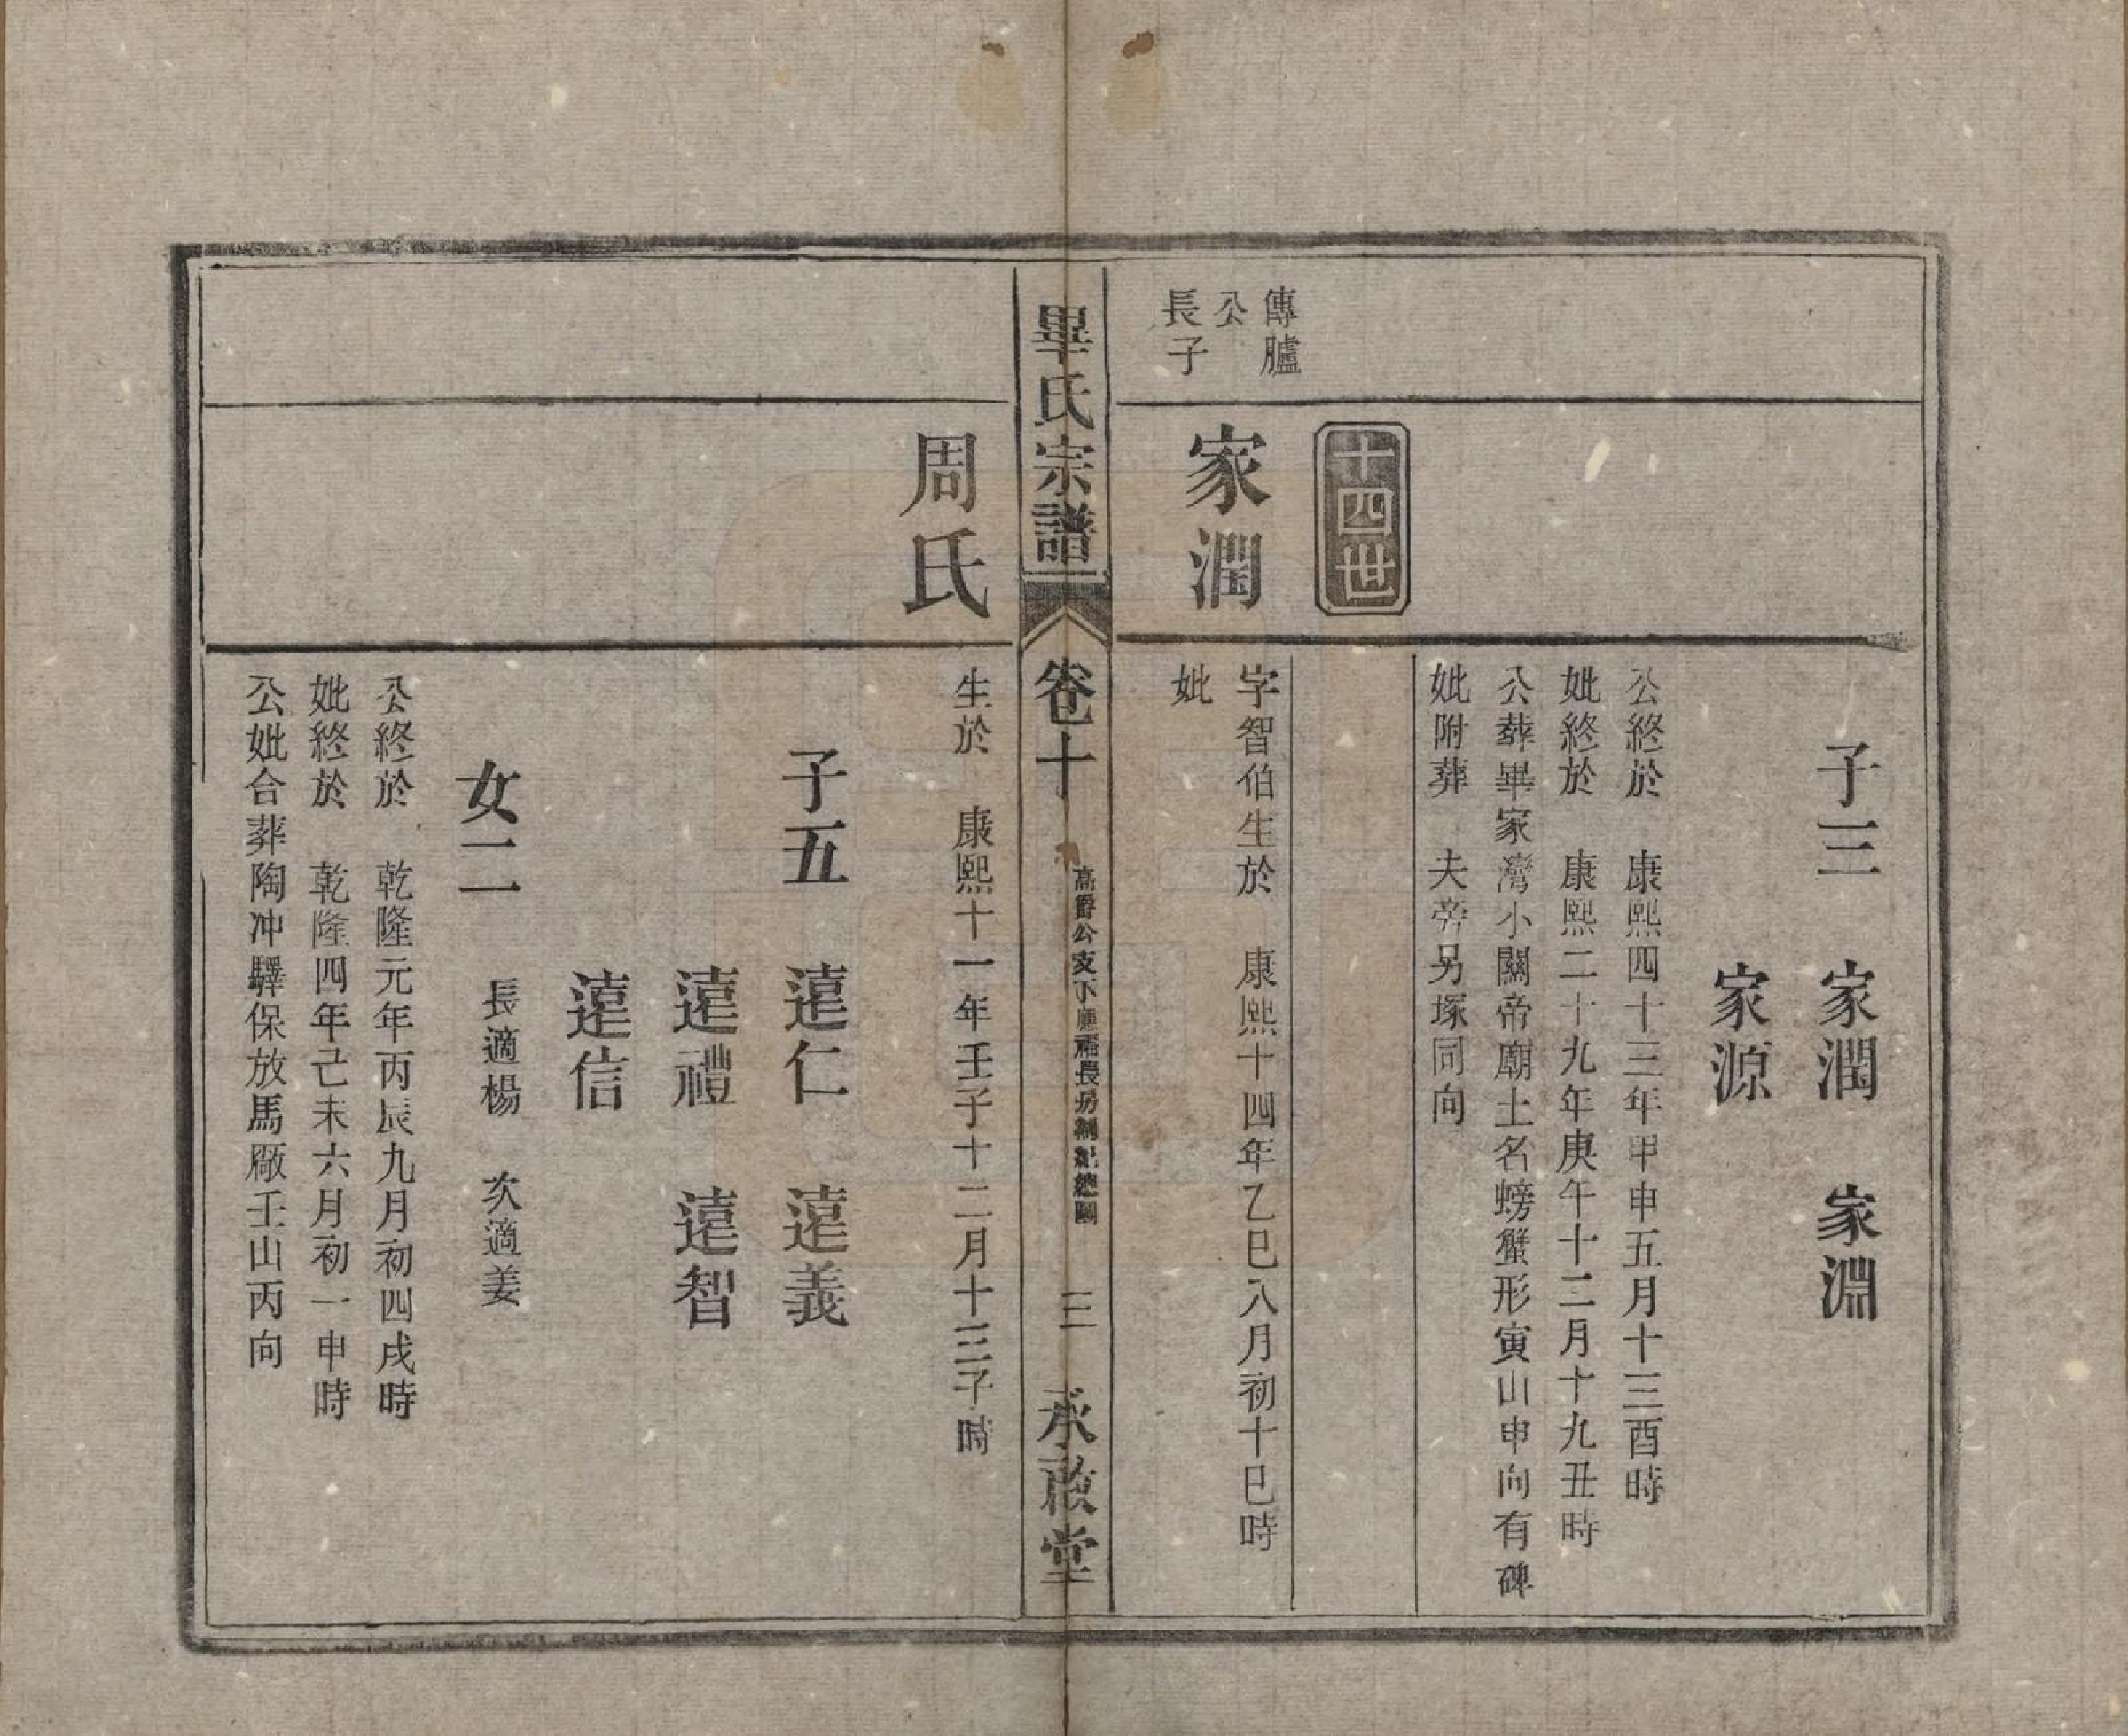 子三　家潤　家淵
家源
公終於　康熙四十三年甲申五月十三酉時
妣終於　康熙二十九年庚午十二月十九丑時
公葬畢家灣小關帝廟土名螃蟹形寅山申向有碑
妣附葬　夫旁另塚同向
十四世
傳臚
公
長子
家潤
字智伯生於　康熙十四年乙巳八月初十巳時
妣
畢氏宗譜
卷十
高爵公支下
長房
總圖
三
承啟堂
周氏
生於　康熙十一年壬子十二月十三子時
子五　遠仁　遠義
遠禮　遠智
遠信
女二　長適楊　次適姜
公終於　乾隆元年丙辰九月初四戌時
妣終於　乾隆四年己未六月初一申時
公妣合葬陶冲驛保放馬厰壬山丙向